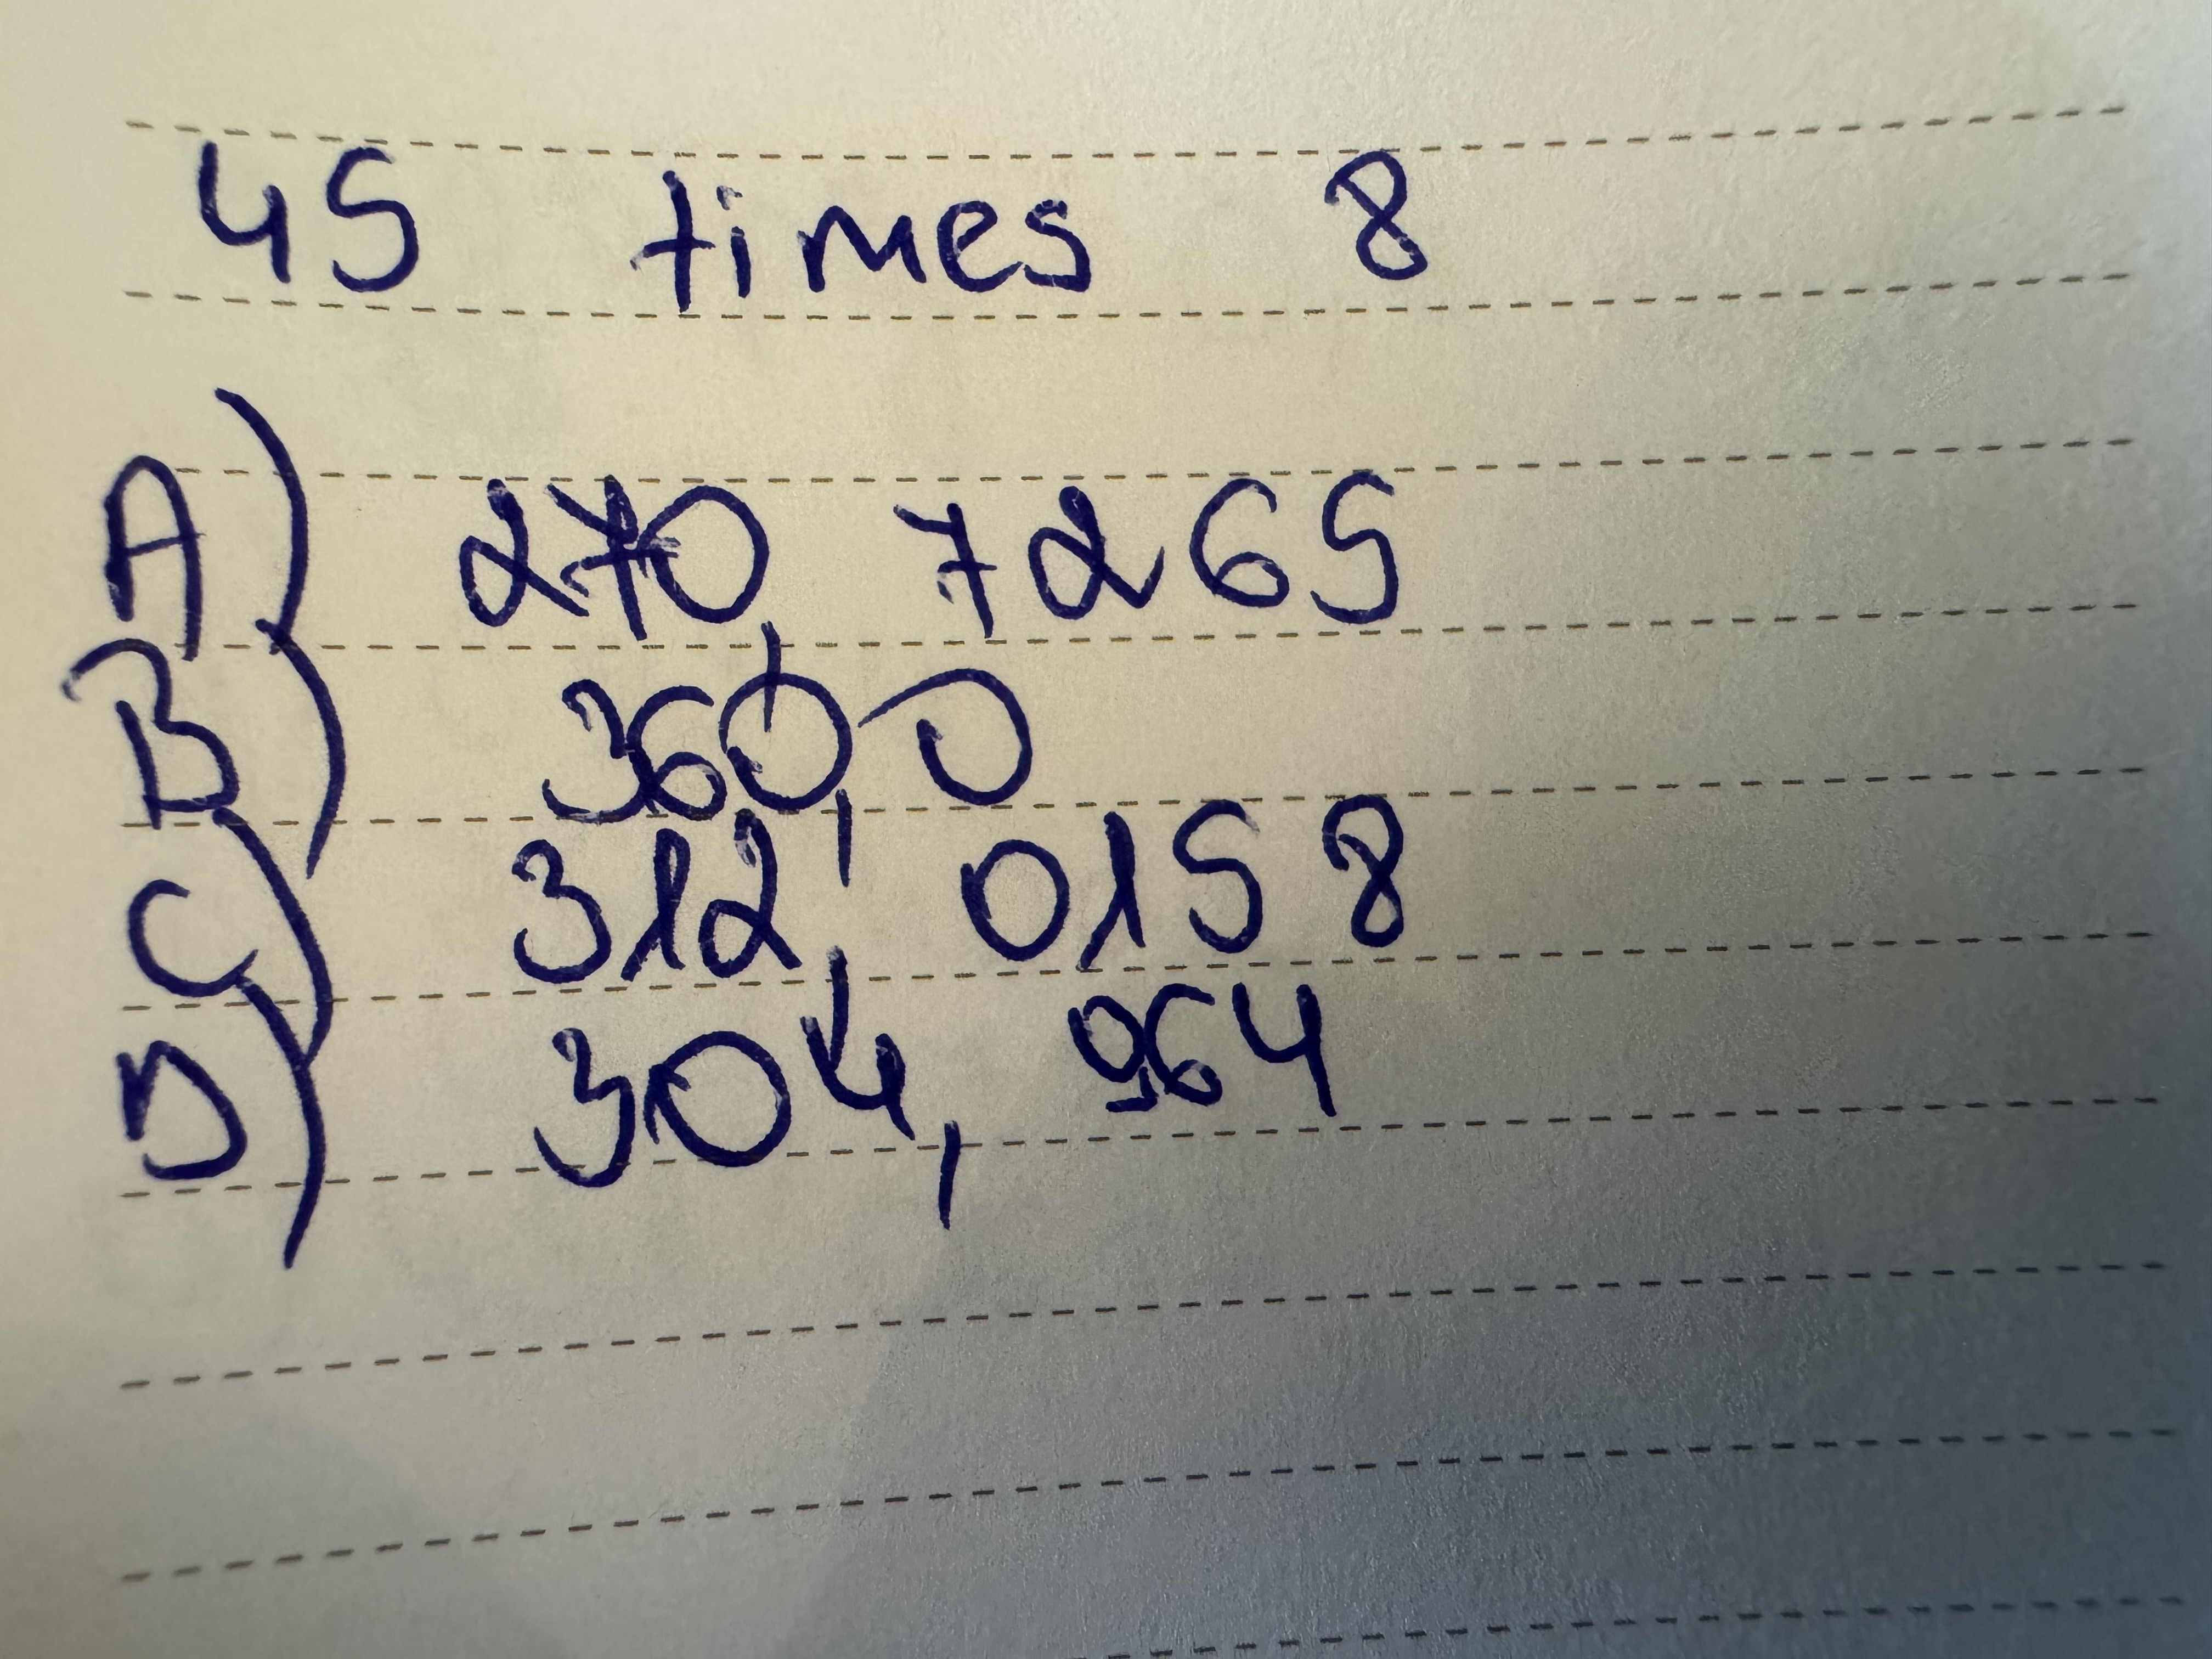 45 times 8
A) 270, 7265
B) 360, 0
C) 312, 0158
D) 304, 964